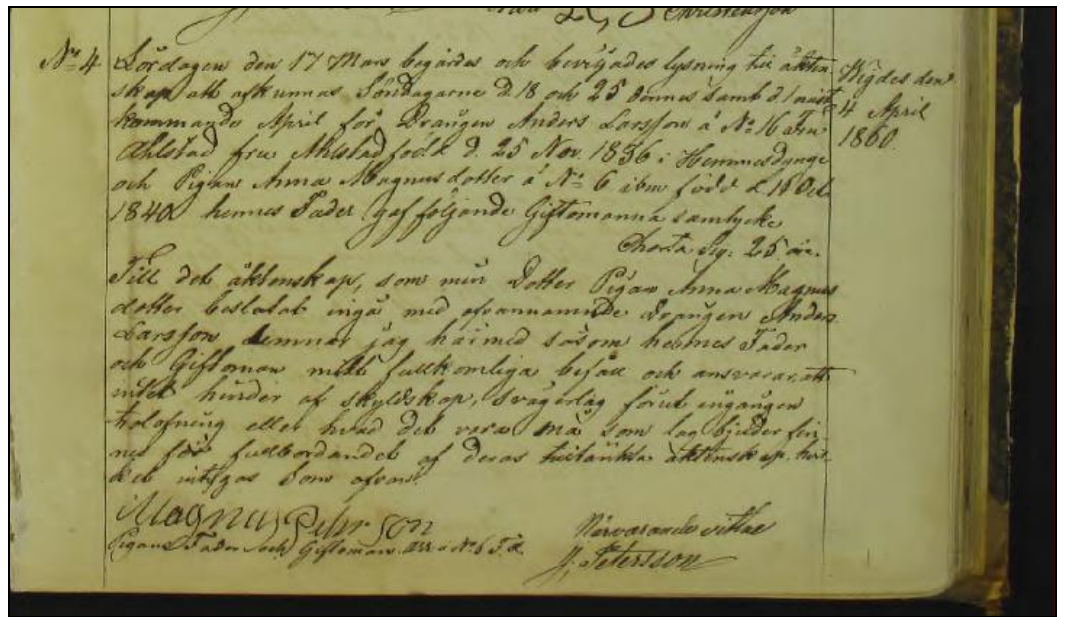 Christensson
No 4 Lördagen den 17 Mars begärdes och beviljades lysning till äkten-
skap att afkunnas Söndagarne d. 18 och 25 dennes samt d. 1 näst-
kommande April för Drängen Anders Larsson å No 16 Fru
Ahlstad fru Ahlstad född d. 25 Nov. 1836 i Hemmesdynge
och Pigan Anna Magnusdotter å No 6 ibm född d. 18 Oct.
1840 hennes Fader gaf följande Giftomanna samtycke
Charta Sig: 25 öre.
Till det äktenskap, som min Dotter Pigan Anna Magnus
dotter beslutat ingå med ofvannämnde Drängen Anders
Larsson lemnar jag härmed såsom hennes Fader
och Giftoman mitt fullkomliga bifall och ansvarar, att
intet hinder af skyldskap, svågerlag, förut ingången
trolofning eller hvad det vara må som lag bjuder fin-
nes för fullbordandet af deras tilltänkta äktenskap. hvil-
ket intygas som ofvan.
Magnus Pehrson
Pigans Fader och Giftoman å No 6 F. A.
Närvarande vittne
Petersson
Wigdes den
4 April
1860.